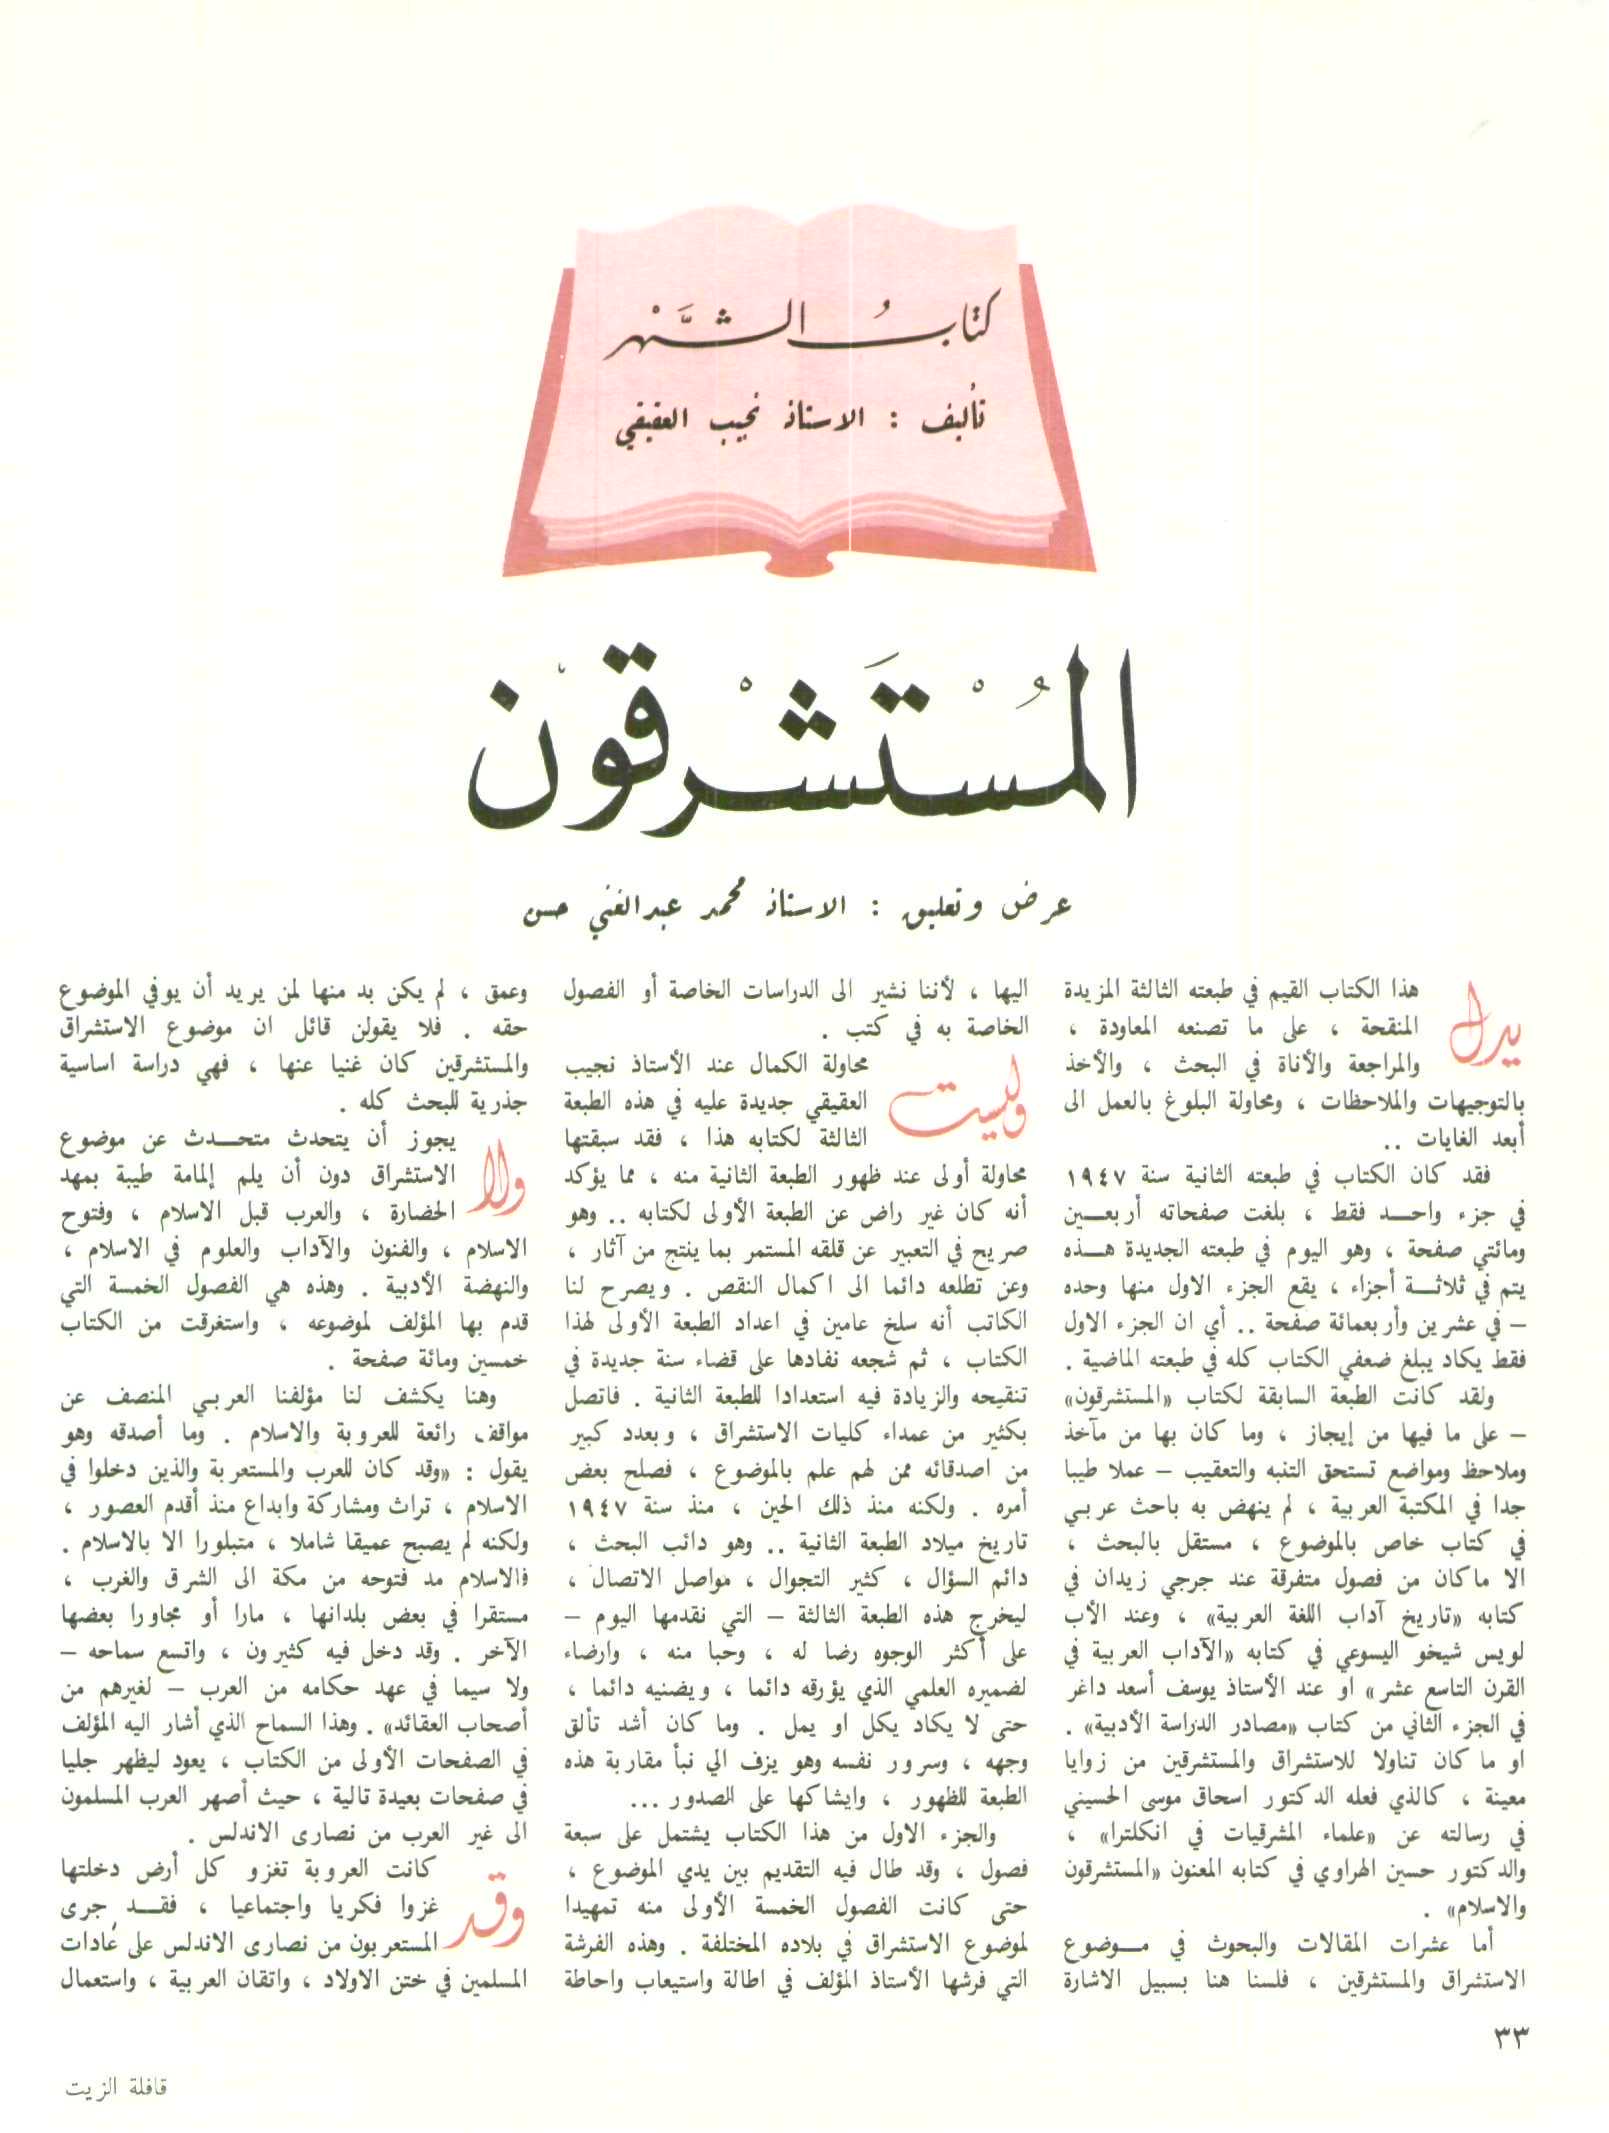 كتابُ الشَّهْر
تأليف : الاستاذ نجيب العقيقي
المُسْتَشْرقون
عرض وتعليق : الاستاذ محمد عبدالغني حسن
يدل هذا الكتاب القيم في طبعته الثالثة المزيدة
المنقحة ، على ما تصنعه المعاودة ،
والمراجعة والأناة في البحث ، والأخذ
بالتوجيهات والملاحظات ، ومحاولة البلوغ بالعمل الى
أبعد الغايات ..
فقد كان الكتاب في طبعته الثانية سنة ١٩٤٧
في جزء واحد فقط ، بلغت صفحاته أربعين
ومائتي صفحة ، وهو اليوم في طبعته الجديدة هذه
يتم في ثلاثة أجزاء ، يقع الجزء الاول منها وحده
– في عشرين وأربعمائة صفحة .. أي ان الجزء الاول
فقط يكاد يبلغ ضعفي الكتاب كله في طبعته الماضية .
ولقد كانت الطبعة السابقة لكتاب «المستشرقون»
– على ما فيها من إيجاز ، وما كان بها من مآخذ
وملاحظ ومواضع تستحق التنبه والتعقيب – عملا طيبا
جدا في المكتبة العربية ، لم ينهض به باحث عربي
في كتاب خاص بالموضوع ، مستقل بالبحث ،
الا ماكان من فصول متفرقة عند جرجي زيدان في
كتابه «تاريخ آداب اللغة العربية» ، وعند الأب
لويس شيخو اليسوعي في كتابه «الآداب العربية في
القرن التاسع عشر» او عند الأستاذ يوسف أسعد داغر
في الجزء الثاني من كتاب «مصادر الدراسة الأدبية» .
او ما كان تناولا للاستشراق والمستشرقين من زوايا
معينة ، كالذي فعله الدكتور اسحاق موسى الحسيني
في رسالته عن «علماء المشرقيات في انكلترا» ،
والدكتور حسين الهراوي في كتابه المعنون «المستشرقون
والاسلام» .
أما عشرات المقالات والبحوث في موضوع
الاستشراق والمستشرقين ، فلسنا هنا بسبيل الاشارة
اليها ، لأننا نشير الى الدراسات الخاصة أو الفصول
الخاصة به في كتب .
وليست محاولة الكمال عند الأستاذ نجيب
العقيقي جديدة عليه في هذه الطبعة
الثالثة لكتابه هذا ، فقد سبقتها
محاولة أولى عند ظهور الطبعة الثانية منه ، مما يؤكد
أنه كان غير راض عن الطبعة الأولى لكتابه .. وهو
صريح في التعبير عن قلقه المستمر بما ينتج من آثار ،
وعن تطلعه دائما الى اكمال النقص . ويصرح لنا
الكاتب أنه سلخ عامين في اعداد الطبعة الأولى لهذا
الكتاب ، ثم شجعه نفادها على قضاء سنة جديدة في
تنقيحه والزيادة فيه استعدادا للطبعة الثانية . فاتصل
بكثير من عمداء كليات الاستشراق ، وبعدد كبير
من اصدقائه ممن لهم علم بالموضوع ، فصلح بعض
أمره . ولكنه منذ ذلك الحين ، منذ سنة ١٩٤٧
تاريخ ميلاد الطبعة الثانية .. وهو دائب البحث ،
دائم السؤال ، كثير التجوال ، مواصل الاتصال ،
ليخرج هذه الطبعة الثالثة – التي نقدمها اليوم –
على أكثر الوجوه رضا له ، وحبا منه ، وارضاء
لضميره العلمي الذي يؤرقه دائما ، ويضنيه دائما ،
حتى لا يكاد يكل او يمل . وما كان أشد تألق
وجهه ، وسرور نفسه وهو يزف الي نبأ مقاربة هذه
الطبعة للظهور ، وايشاكها على الصدور ...
والجزء الاول من هذا الكتاب يشتمل على سبعة
فصول ، وقد طال فيه التقديم بين يدي الموضوع ،
حتى كانت الفصول الخمسة الأولى منه تمهيدا
لموضوع الاستشراق في بلاده المختلفة . وهذه الفرشة
التي فرشها الأستاذ المؤلف في اطالة واستيعاب واحاطة
وعمق ، لم يكن بد منها لمن يريد أن يوفي الموضوع
حقه . فلا يقولن قائل ان موضوع الاستشراق
والمستشرقين كان غنيا عنها ، فهي دراسة اساسية
جذرية للبحث كله .
ولا يجوز أن يتحدث متحدث عن موضوع
الاستشراق دون أن يلم إلمامة طيبة بمهد
الحضارة ، والعرب قبل الاسلام ، وفتوح
الاسلام ، والفنون والآداب والعلوم في الاسلام ،
والنهضة الأدبية . وهذه هي الفصول الخمسة التي
قدم بها المؤلف لموضوعه ، واستغرقت من الكتاب
خمسين ومائة صفحة .
وهنا يكشف لنا مؤلفنا العربي المنصف عن
مواقف رائعة للعروبة والاسلام . وما أصدقه وهو
يقول : «وقد كان للعرب والمستعربة والذين دخلوا في
الاسلام ، تراث ومشاركة وابداع منذ أقدم العصور ،
ولكنه لم يصبح عميقا شاملا ، متبلورا الا بالاسلام .
فالاسلام مد فتوحه من مكة الى الشرق والغرب ،
مستقرا في بعض بلدانها ، مارا أو مجاورا بعضها
الآخر . وقد دخل فيه كثيرون ، واتسع سماحه –
ولا سيما في عهد حكامه من العرب – لغيرهم من
أصحاب العقائد» . وهذا السماح الذي أشار اليه المؤلف
في الصفحات الأولى من الكتاب ، يعود ليظهر جليا
في صفحات بعيدة تالية ، حيث أصهر العرب المسلمون
الى غير العرب من نصارى الاندلس .
وقد كانت العروبة تغزو كل أرض دخلتها
غزوا فكريا واجتماعيا ، فقد جرى
المستعربون من نصارى الاندلس على عادات
المسلمين في ختن الاولاد ، واتقان العربية ، واستعمال
٣٣
قافلة الزيت